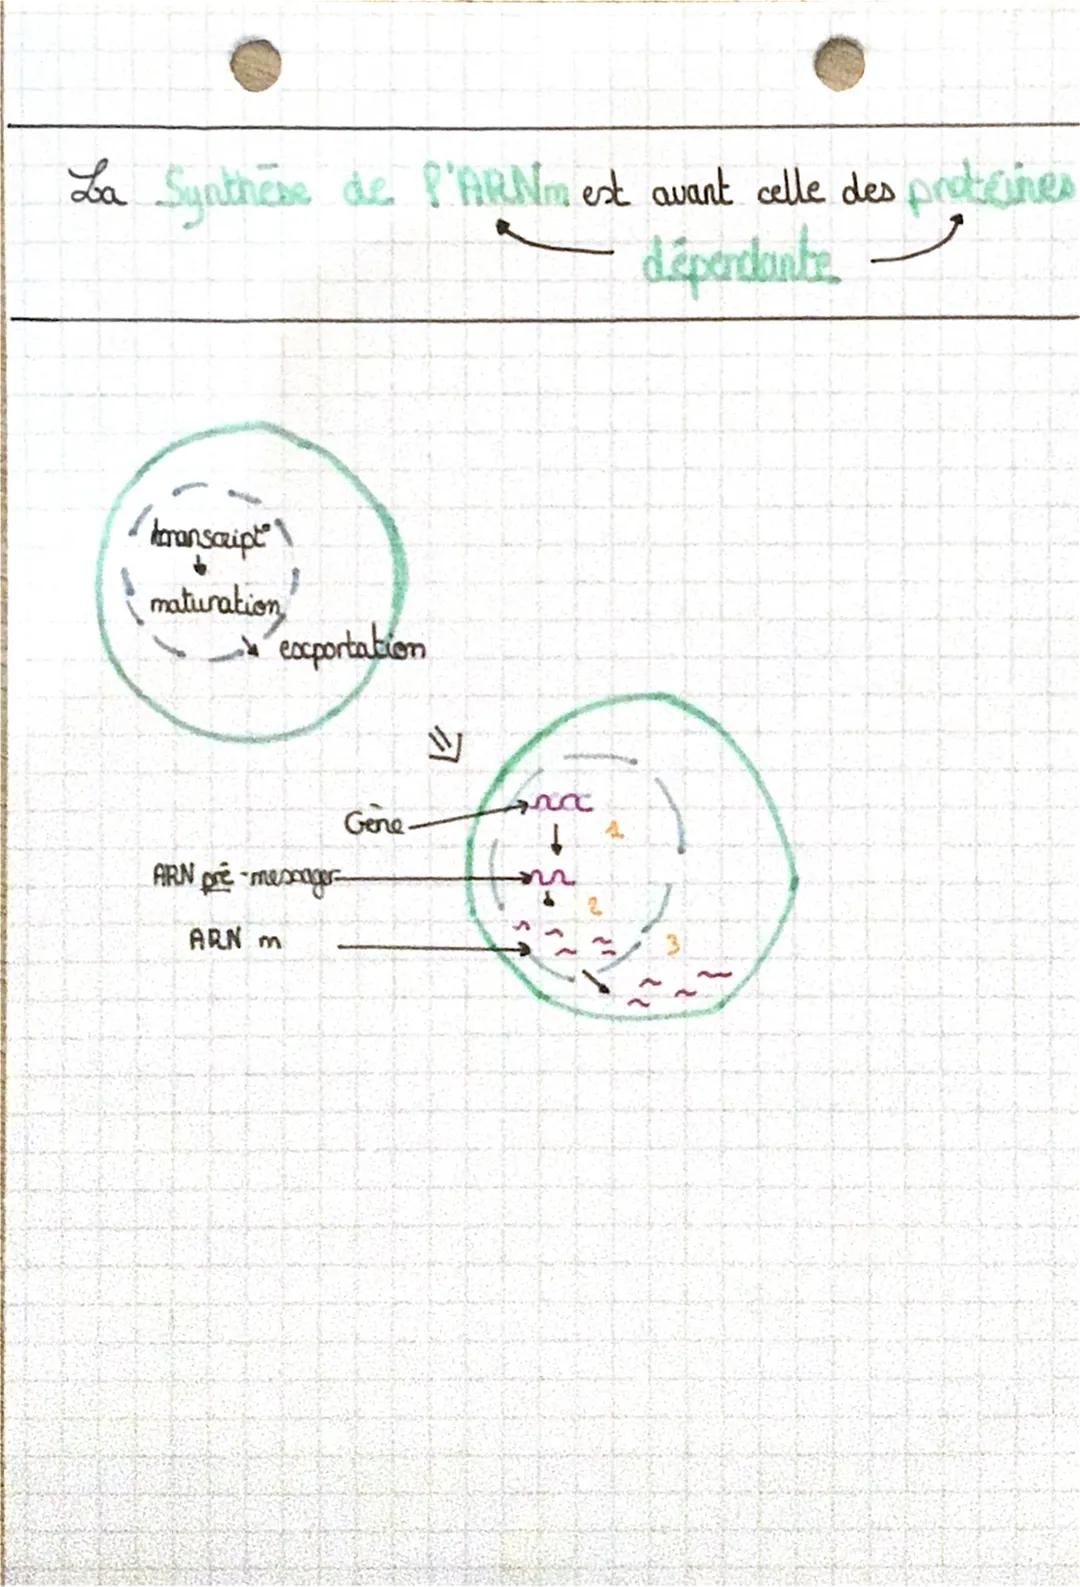 La Synthèse de l'ARNm est avant celle des protéines
dépendante
transcript°
maturation
exportation
Gène
1
ARN pré-messager
2
ARN m
3